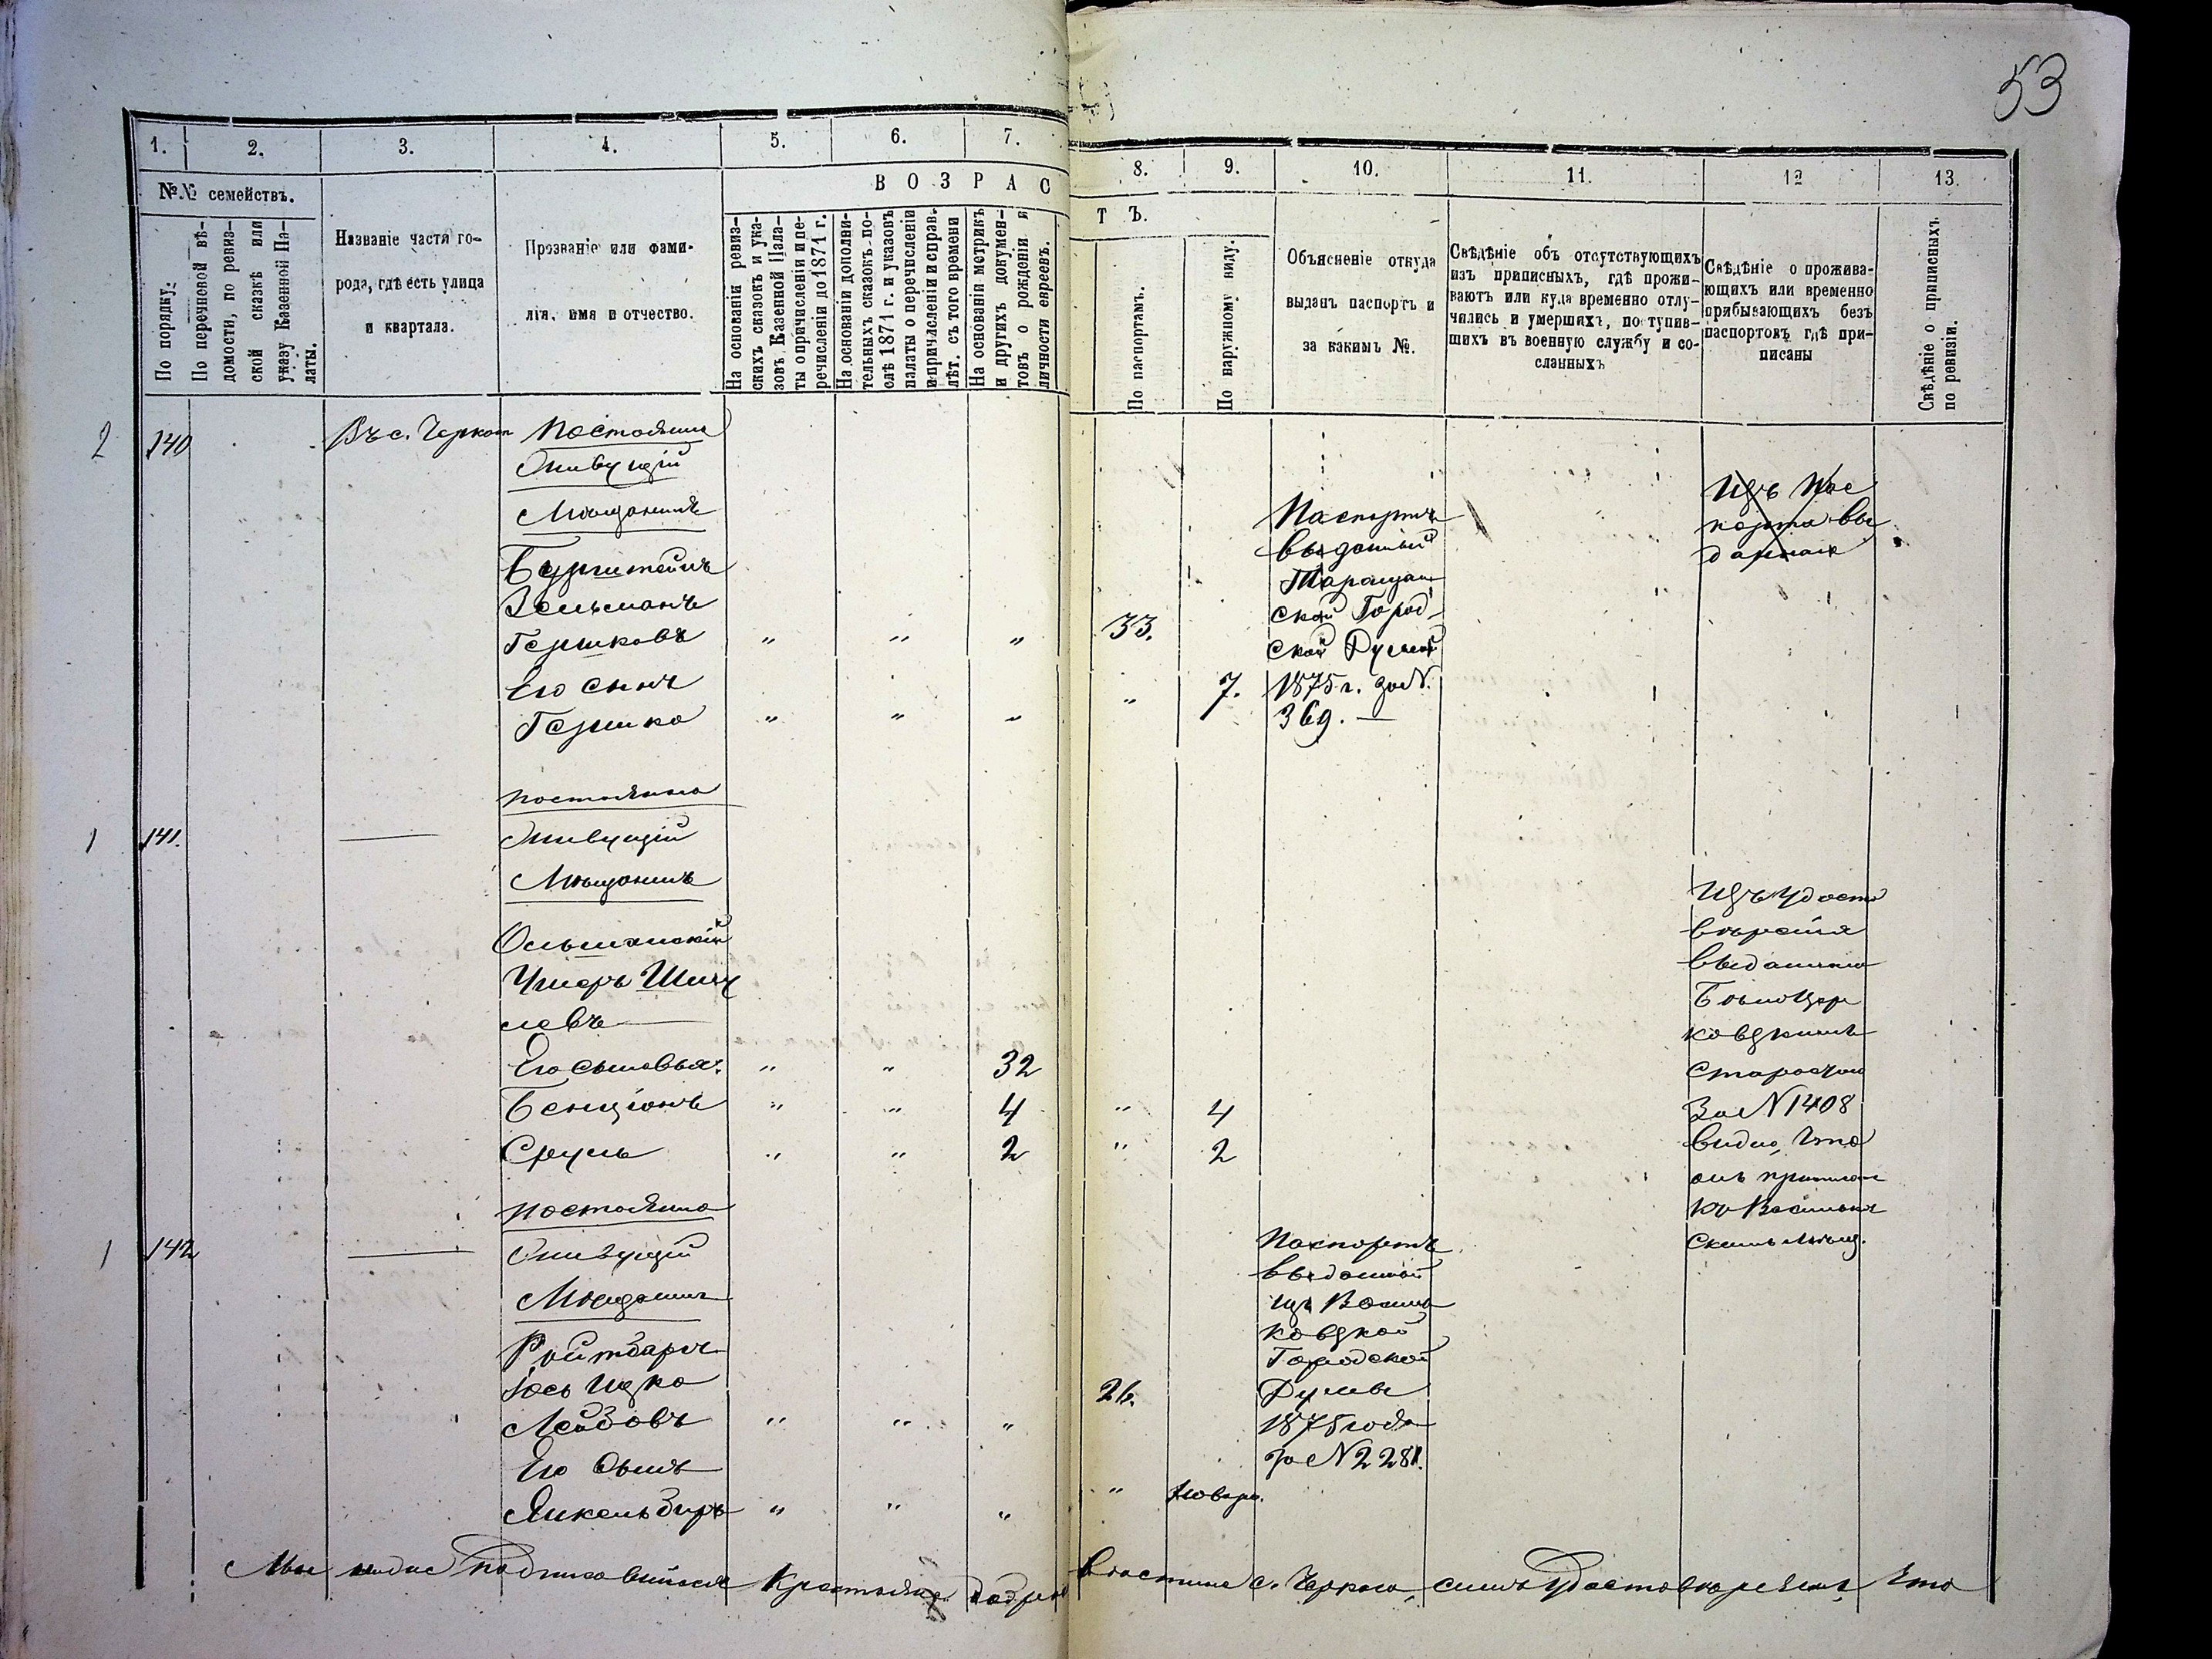 53
1. 2. 3. 4. 5. 6. 7. 8. 9. 10. 11. 12 13.
№№ семействъ.
По порядку.
По перечневой вѣ-
домости, по ревиз-
ской сказкѣ или
указу Казенной Па-
латы.
Названіе части го-
рода, гдѣ есть улица
и квартала.
Прозваніе или фами-
лія, имя и отчество.
ВОЗРАСТЪ.
На основаніи ревиз-
скихъ сказокъ и ука-
зовъ Казенной Пала-
ты о причисленіи и пе-
речисленіи до 1871 г.
На основаніи дополни-
тельныхъ сказокъ по-
слѣ 1871 г. и указовъ
палаты о перечисленіи
и причисленіи и справ.
лѣт. съ того времени
На основаніи метрикъ
и другихъ докумен-
товъ о рожденіи и
личности евреевъ.
По паспортамъ.
По наружному виду.
Объясненіе откуда
выданъ паспортъ и
за какимъ №.
Свѣдѣніе объ отсутствующихъ
изъ приписныхъ, гдѣ прожи-
ваютъ или куда временно отлу-
чились и умершихъ, поступив-
шихъ въ военную службу и со-
сланныхъ
Свѣдѣніе о прожива-
ющихъ или временно
прибывающихъ безъ
паспортовъ гдѣ при-
писаны
Свѣдѣніе о приписныхъ
по ревизіи.
2 140 Въ с. Черкас Постоянно
Живущій
Мѣщанинъ
Бурштейнъ
Зельманъ
Гершковъ " " " 33.
Его сынъ
Гершко " " " " 7.
Паспортъ
выданный
Таращан
ской Город
ской Думой
1875 г. за N.
369. —
Изъ пас
порта вы
даннаго
постоянно
1 141. — Живущій
Мѣщанинъ
Ольшанскій
Ушеръ Шму
левъ —
Его сыновья: " " 32
Бенціонъ " " 4 " 4
Сруль " " 2 " 2
Изъ удосто
вѣренія
выданнаго
Бѣлоцер
ковскимъ
Старостою
За N 1408
видно, что
онъ приписан
къ Васильков
скимъ мѣщ.
постоянно
1 142 — Живущій
Мѣщанинъ
Ройтбаргъ
Іось Ицко
Лейбовъ " " " 26.
Его Сынъ
Янкель Беръ " " " "
Паспортъ
выданной
изъ Василь
ковской
Городской
Думы
1875 года
за N 2281.
Мы ниже подписавшіеся Крестьяне с. Черкас симъ удостовѣряемъ, что